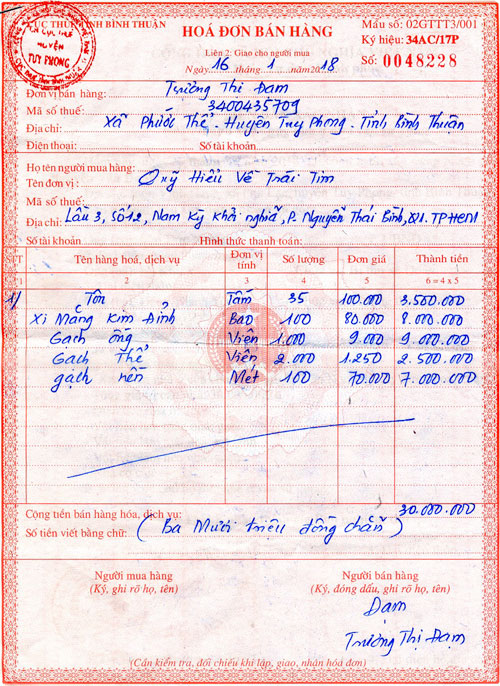 CỤC THUẾ TỈNH BÌNH THUẬN
CHI CỤC THUẾ
HUYỆN
TUY PHONG
HOÁ ĐƠN BÁN HÀNG
Liên 2: Giao cho người mua
Ngày 16 tháng 1 năm 2018
Mẫu số: 02GTTT3/001
Ký hiệu: 34AC/17P
Số: 0048228
Đơn vị bán hàng: Trương Thị Đam
Mã số thuế: 3400435709
Địa chỉ: Xã Phước Thể - Huyện Tuy Phong - Tỉnh Bình Thuận
Điện thoại: Số tài khoản
Họ tên người mua hàng:
Tên đơn vị: Quỹ Hiểu Về Trái Tim
Mã số thuế
Địa chỉ: Lầu 3, Số 12, Nam Kỳ Khởi Nghĩa, P. Nguyễn Thái Bình, Q1. TPHCM
Số tài khoản Hình thức thanh toán:
STT Tên hàng hoá, dịch vụ Đơn vị tính Số lượng Đơn giá Thành tiền
1 2 3 4 5 6 = 4 x 5
1/ Tôn Tấm 35 100.000 3.500.000
Xi Măng Kim Đỉnh Bao 100 80.000 8.000.000
Gạch ống Viên 1.000 9.000 9.000.000
Gạch Thẻ Viên 2.000 1.250 2.500.000
gạch nền Mét 100 70.000 7.000.000
Cộng tiền bán hàng hóa, dịch vụ: 30.000.000
Số tiền viết bằng chữ: ( Ba Mươi triệu đồng chẵn )
Người mua hàng Người bán hàng
(Ký, ghi rõ họ, tên) (Ký, đóng dấu, ghi rõ họ, tên)
Đạm
Trương Thị Đạm
(Cần kiểm tra, đối chiếu khi lập, giao, nhận hóa đơn)